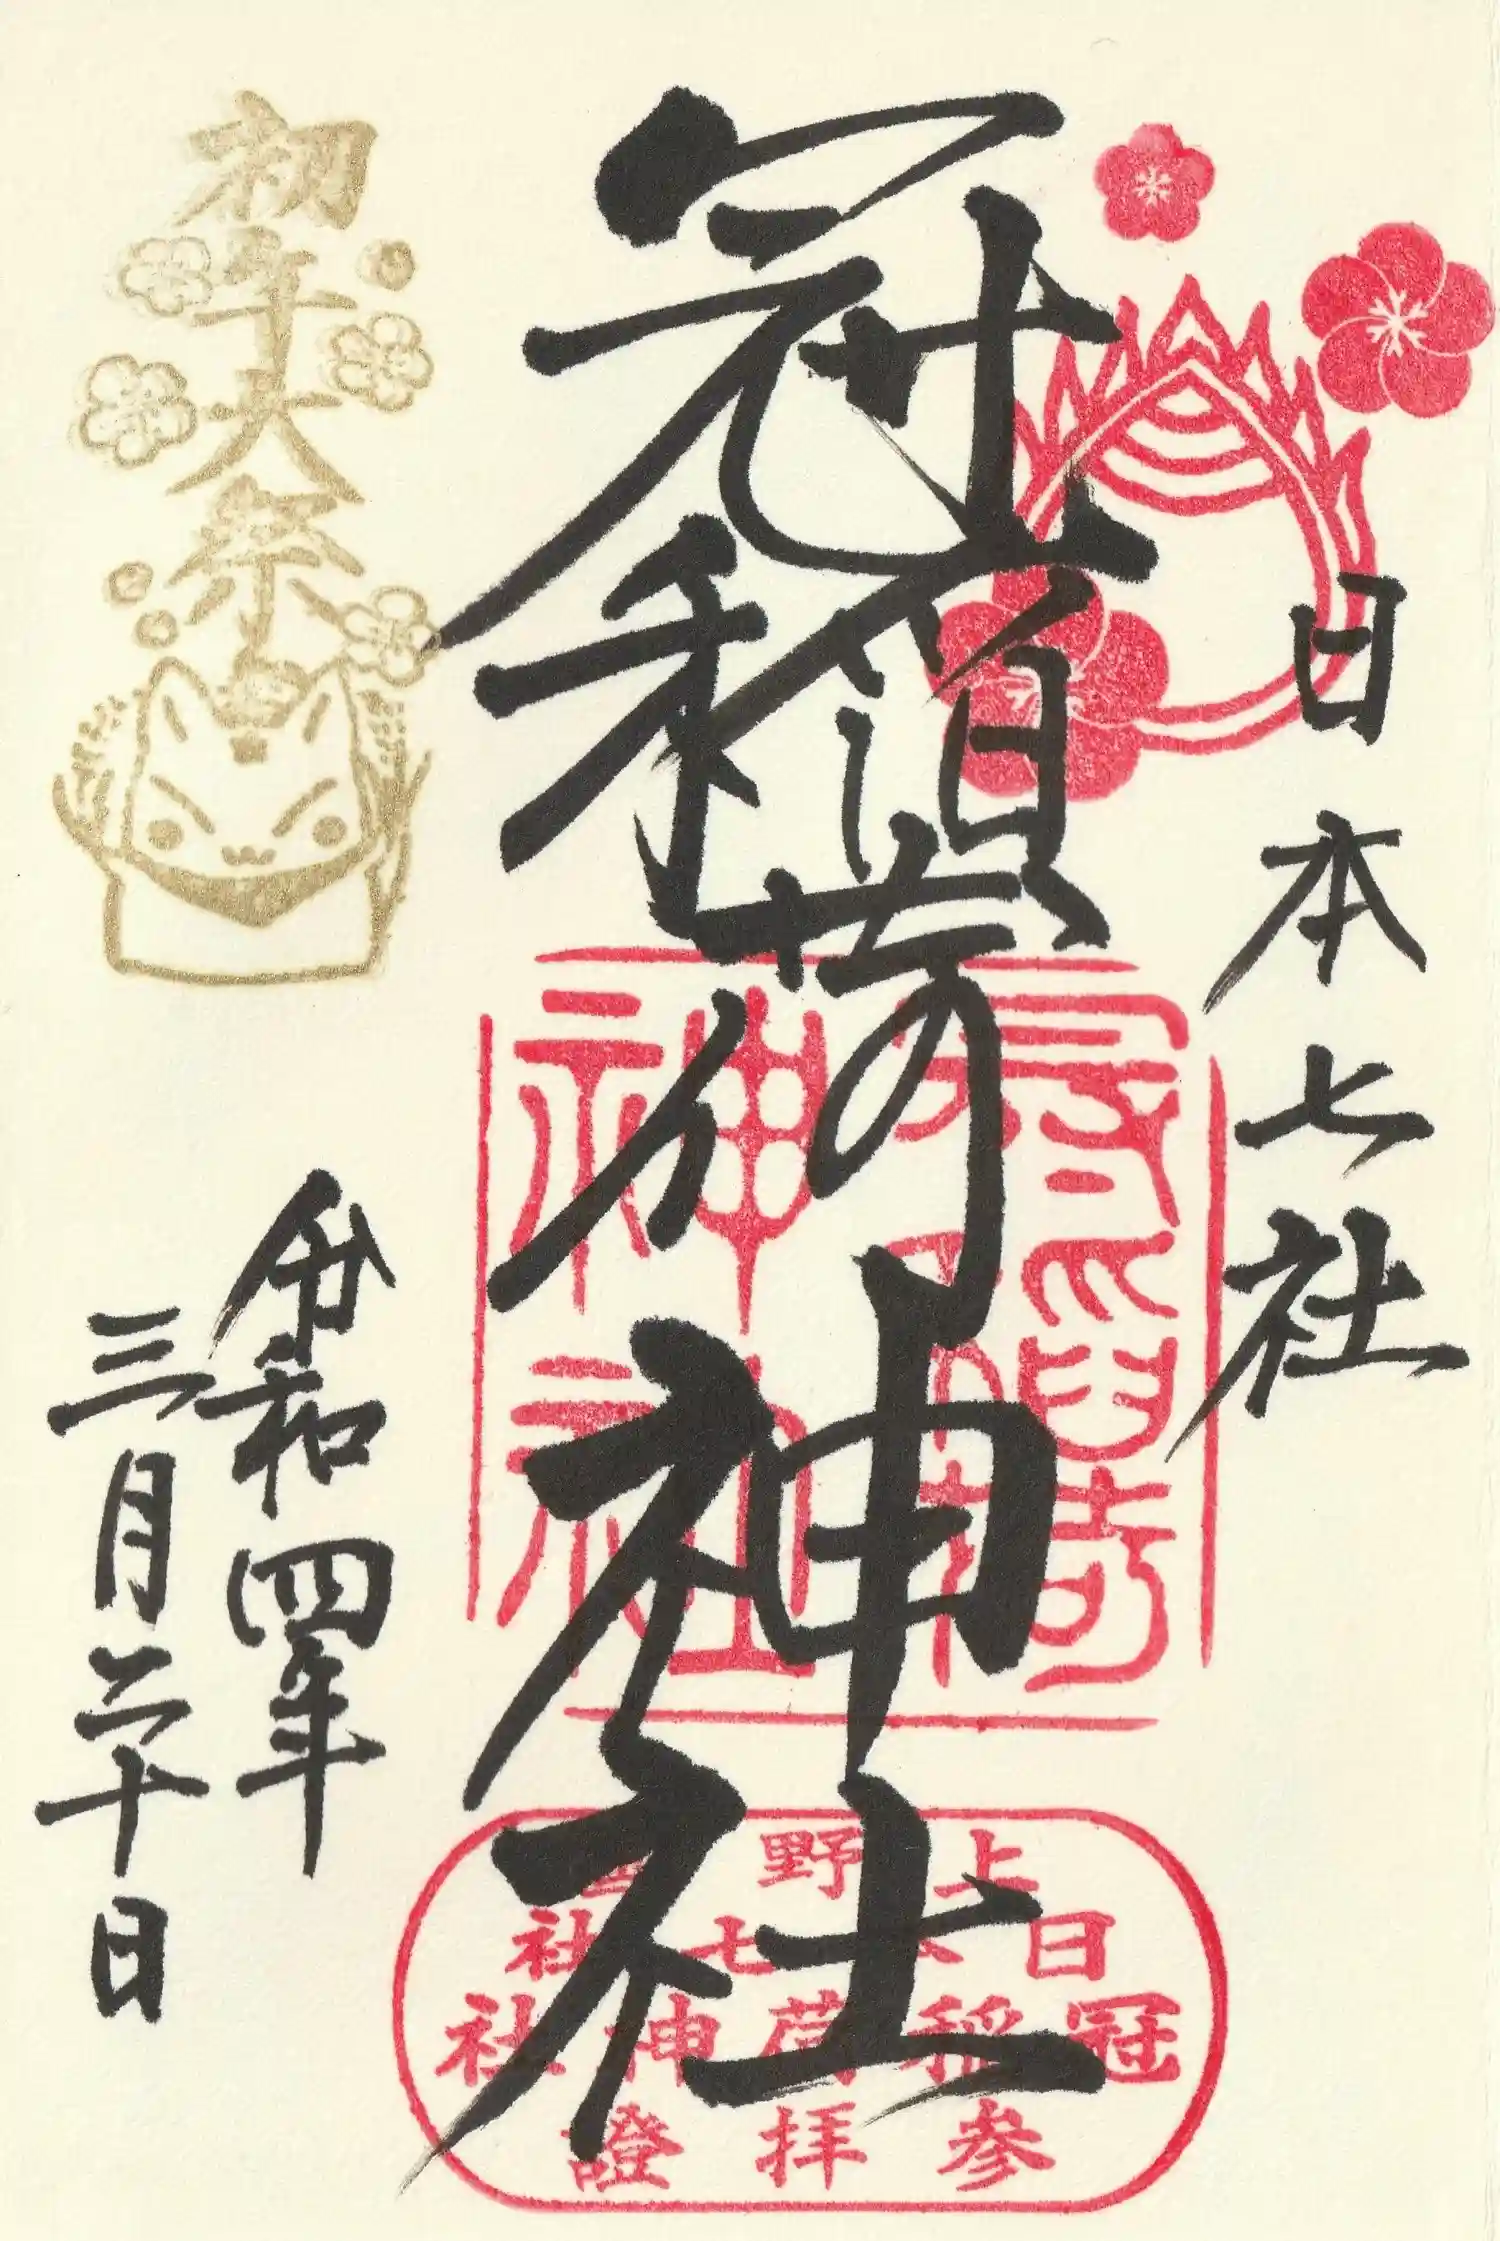 日本七社
冠稲荷神社
初午大祭
令和四年
三月二十日
冠稲荷神社
上野國
日本七社
冠稲荷神社
参拝證